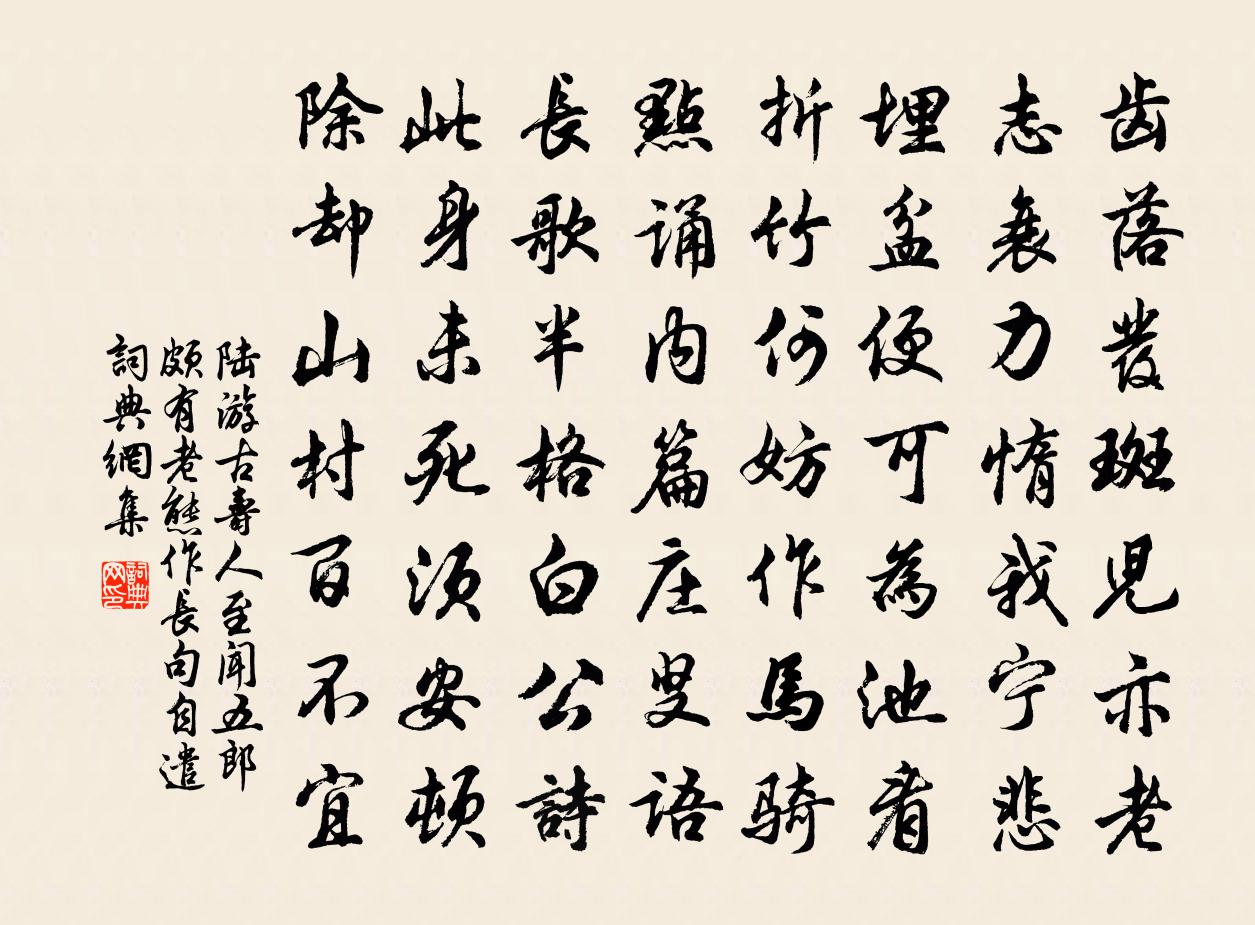 齿落發斑兒亦老
志衰力惰我宁悲
埋盆便可為池看
折竹何妨作馬骑
點诵内篇庄叟语
長歌半格白公詩
此身未死须安顿
除却山村百不宜
陆游古壽人至闻五郎
頗有老態作長句自遣
詞典網集
詞典网印